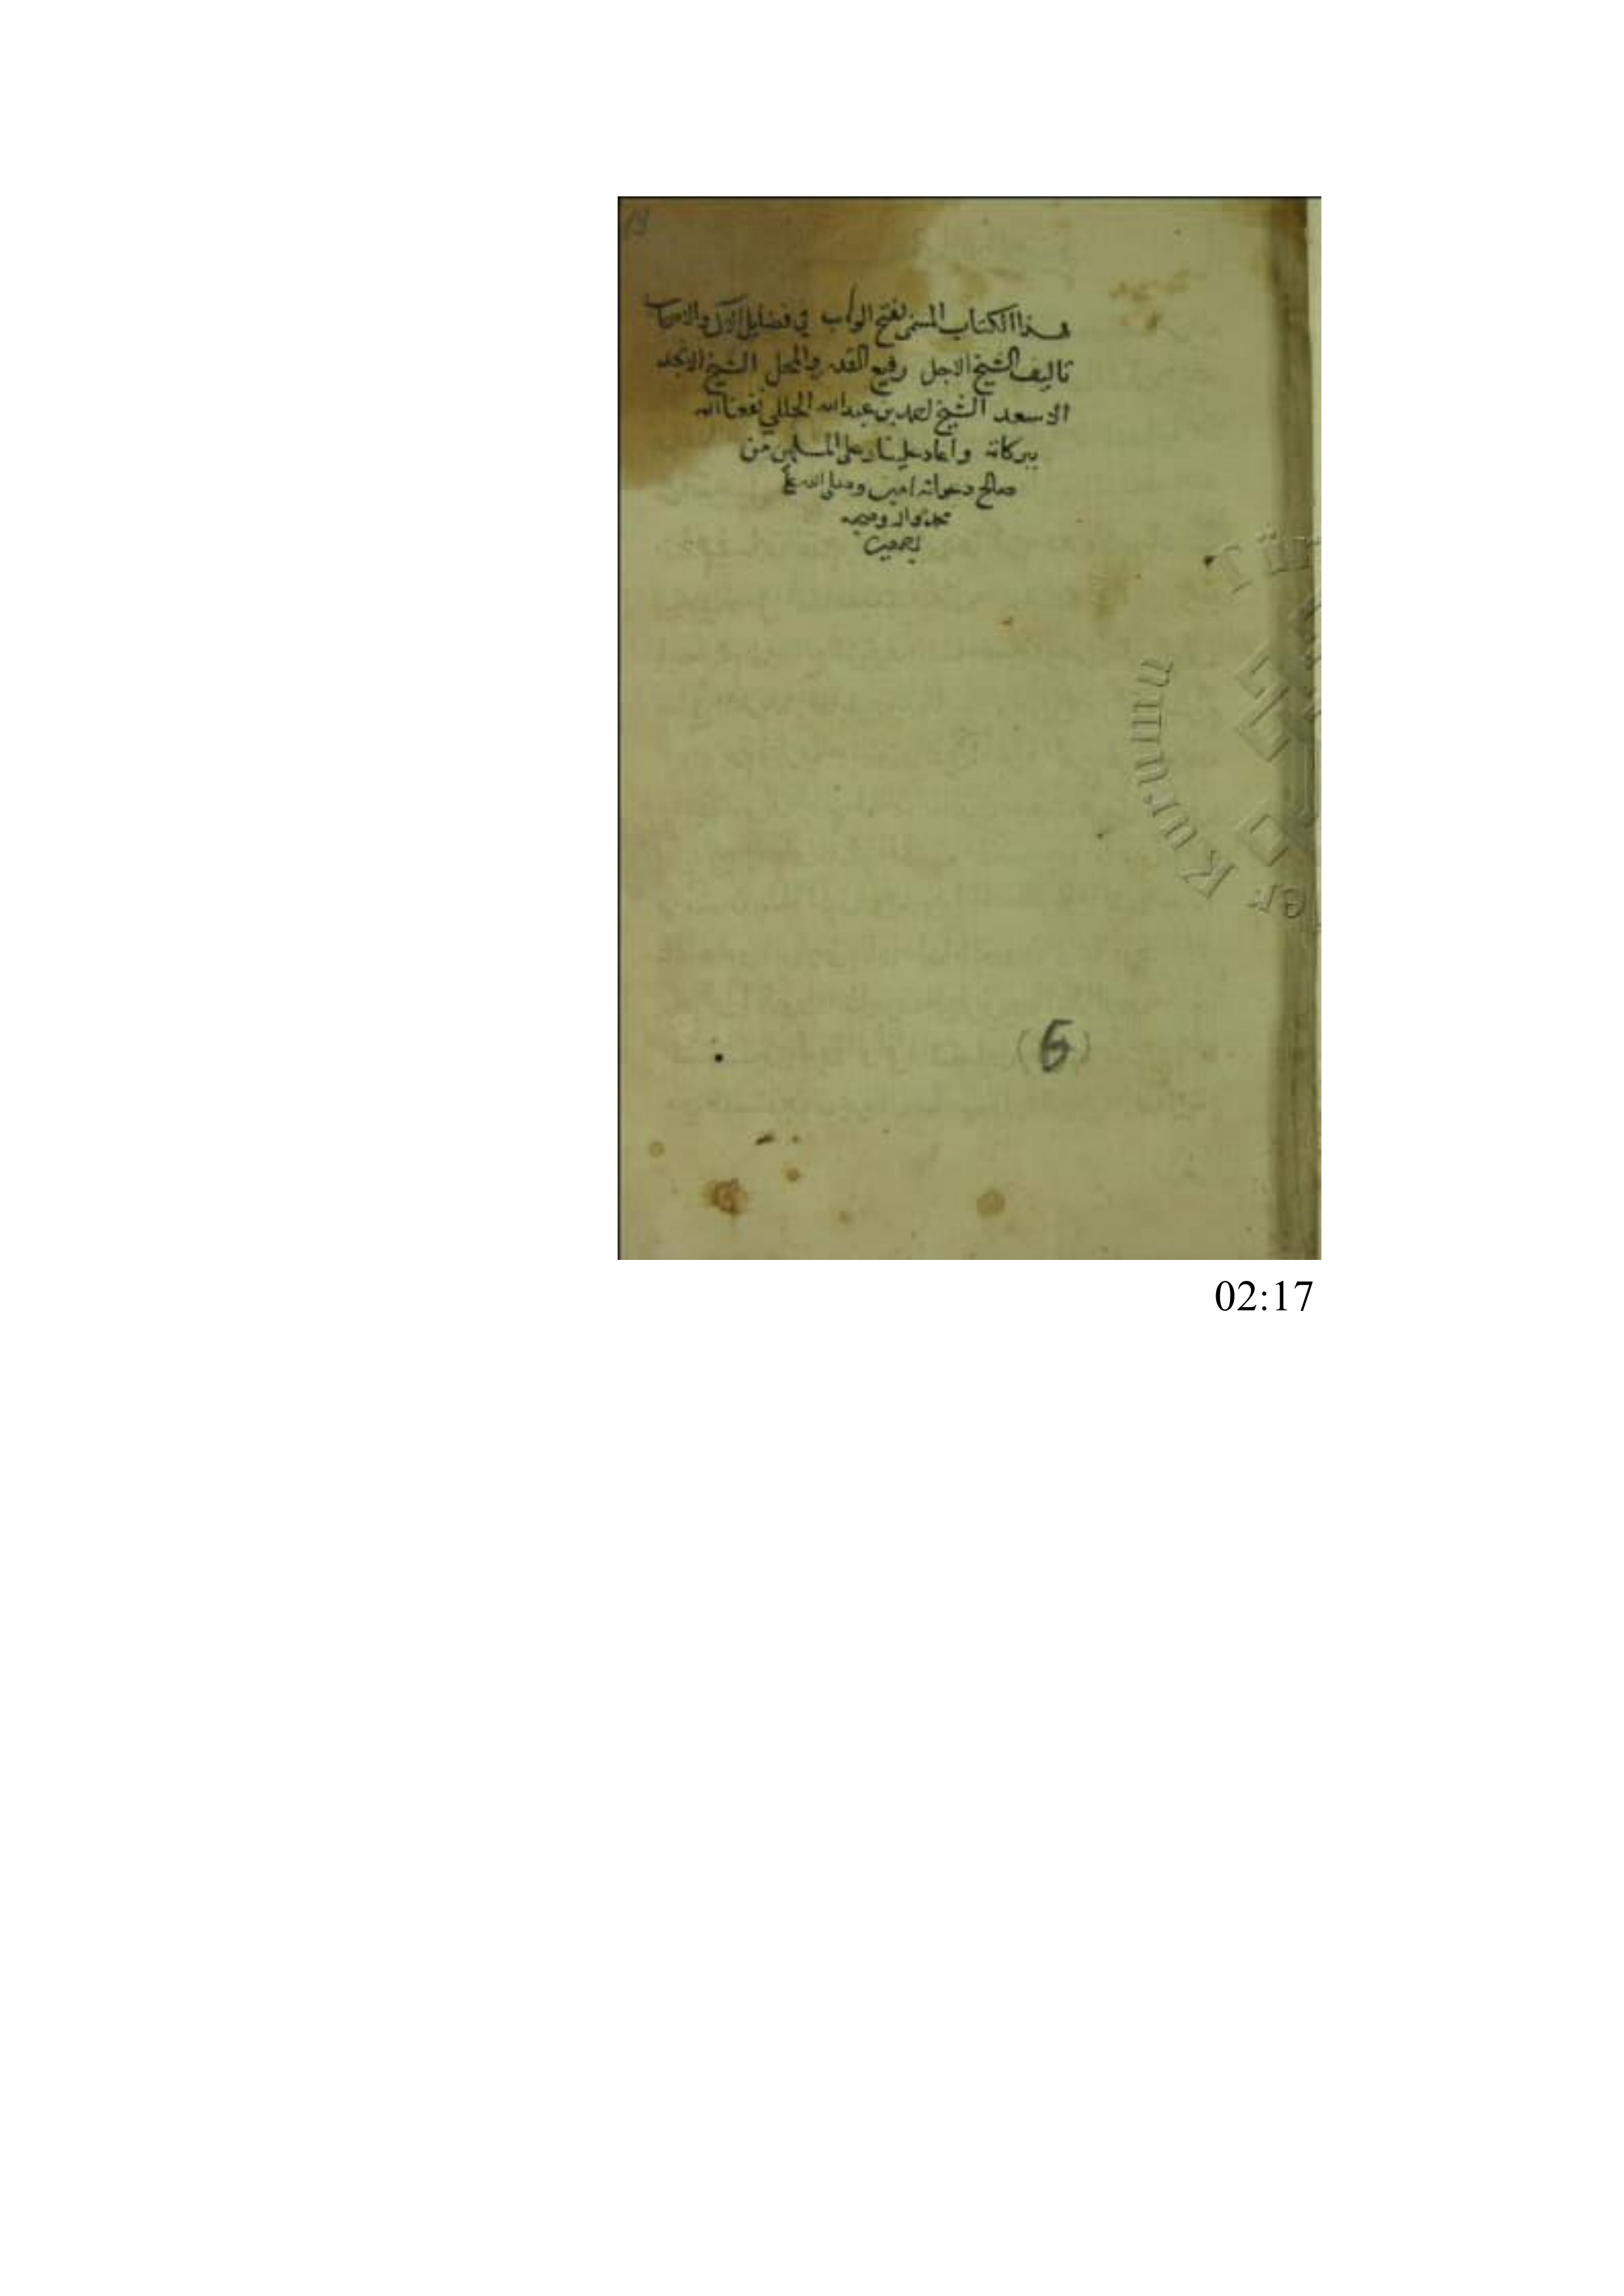 هذا الكتاب المسمى بفتح الوهاب في فضايل الآل والاصحاب
تاليف الشيخ الاجل رفيع القدر والمحل الشيخ الامجد
الاسعد الشيخ احمد بن عبد الله نفعنا الله
ببركاته واعاد علينا وعلى المسلمين من
صالح دعواته امين وصلى الله على
محمد واله وصحبه
اجمعين
(6)
02:17